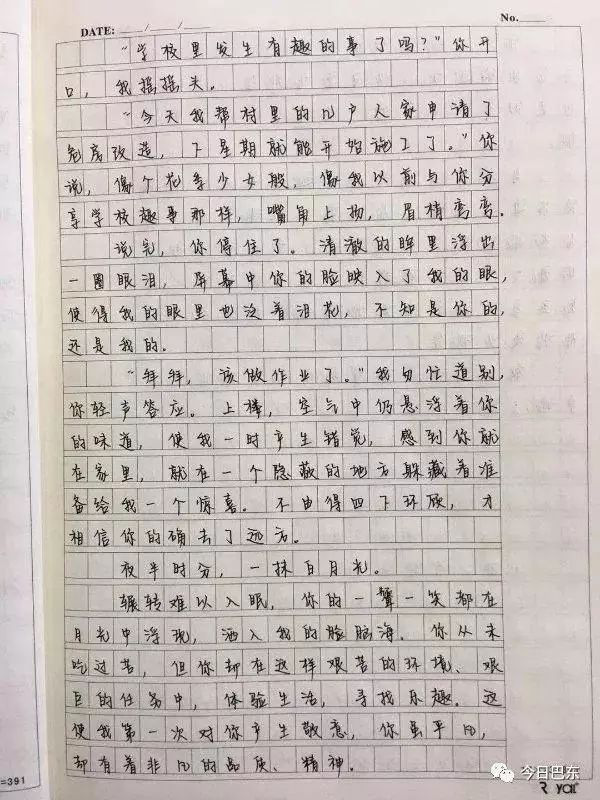 DATE: / /
No.
“学校里发生有趣的事了吗?”你开
口，我摇摇头。
“今天我帮村里的几户人家申请了
危房改造，下星期就能开始施工了。”你
说，像个花季少女般，像我以前与你分
享学校趣事那样，嘴角上扬，眉梢弯弯。
说完，你停住了。清澈的眸里浮出
一圈眼泪，屏幕中你的脸映入了我的眼，
使得我的眼里也泛着泪花，不知是你的，
还是我的。
“拜拜，该做作业了。”我匆忙道别，
你轻声答应。上楼，空气中仍悬浮着你
的味道，使我一时产生错觉，感到你就
在家里，就在一个隐藏的地方躲藏着准
备给我一个惊喜。不由得四下环顾，才
相信你的确去了远方。
夜半时分，一抹白月光。
辗转难以入眠，你的一颦一笑都在
月光中浮现，洒入我的脸脑海。你从未
吃过苦，但你却在这样艰苦的环境、艰
巨的任务中，体验生活，寻找乐趣。这
使我第一次对你产生敬意，你虽平凡，
却有着非凡的品质、精神。
=391
今日巴东